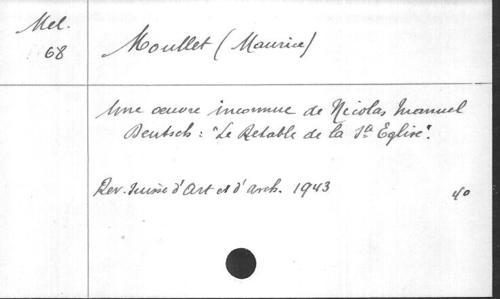 Mel.
68
Moullet (Maurice)
Une œuvre inconnue de Nicolas Manuel
Deutsch : "Le Retable de la Ste Eglise".
Rev. suisse d'Art et d'arch. 1943
40